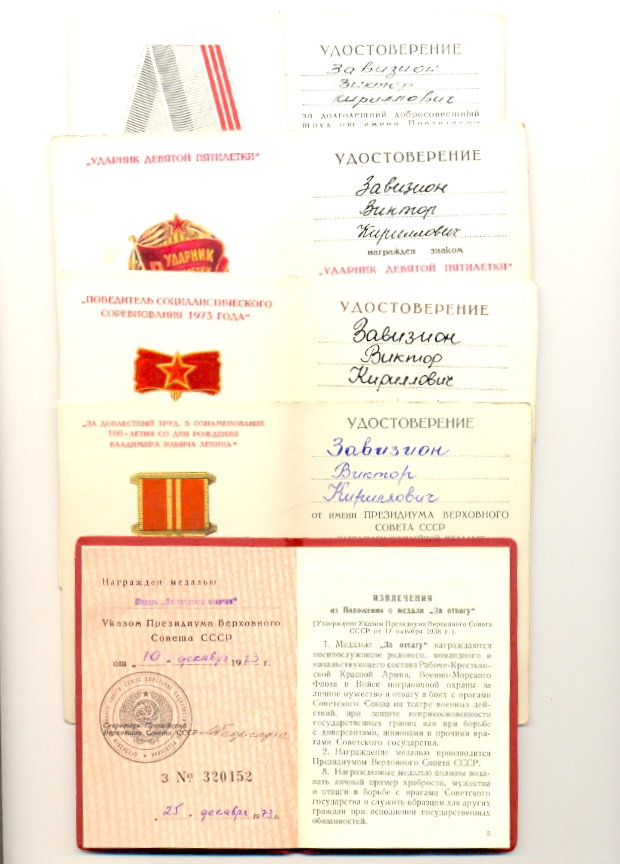 УДОСТОВЕРЕНИЕ
Завизион
Виктор
Кириллович
за долголетний добросовестный
труд от имени Президиума
„УДАРНИК ДЕВЯТОЙ ПЯТИЛЕТКИ“
УДАРНИК
УДОСТОВЕРЕНИЕ
Завизион
Виктор
Кириллович
награжден знаком
„УДАРНИК ДЕВЯТОЙ ПЯТИЛЕТКИ“
„ПОБЕДИТЕЛЬ СОЦИАЛИСТИЧЕСКОГО
СОРЕВНОВАНИЯ 1973 ГОДА“
УДОСТОВЕРЕНИЕ
Завизион
Виктор
Кириллович
„ЗА ДОБЛЕСТНЫЙ ТРУД. В ОЗНАМЕНОВАНИЕ
100-ЛЕТИЯ СО ДНЯ РОЖДЕНИЯ
ВЛАДИМИРА ИЛЬИЧА ЛЕНИНА“
УДОСТОВЕРЕНИЕ
Завизион
Виктор
Кириллович
от имени ПРЕЗИДИУМА ВЕРХОВНОГО
СОВЕТА СССР
Награжден медалью
Указом Президиума Верховного
Совета СССР
от 10 декабря 1973 г.
Секретарь Президиума
Верховного Совета СССР
З № 320152
25 декабря 1973 г.
ИЗВЛЕЧЕНИЯ
из Положения о медали „За отвагу“
(Утверждено Указом Президиума Верховного Совета
СССР от 17 октября 1938 г.).
1. Медалью „За отвагу“ награждаются
военнослужащие рядового, командного и
начальствующего состава Рабоче-Крестьян-
ской Красной Армии, Военно-Морского
Флота и Войск пограничной охраны за
личное мужество и отвагу в боях с врагами
Советского Союза на театре военных дей-
ствий, при защите неприкосновенности
государственных границ или при борьбе
с диверсантами, шпионами и прочими вра-
гами Советского государства.
2. Награждение медалью производится
Президиумом Верховного Совета СССР.
8. Награжденные медалью должны пода-
вать личный пример храбрости, мужества
и отваги в борьбе с врагами Советского
государства и служить образцом для других
граждан при исполнении государственных
обязанностей.
5